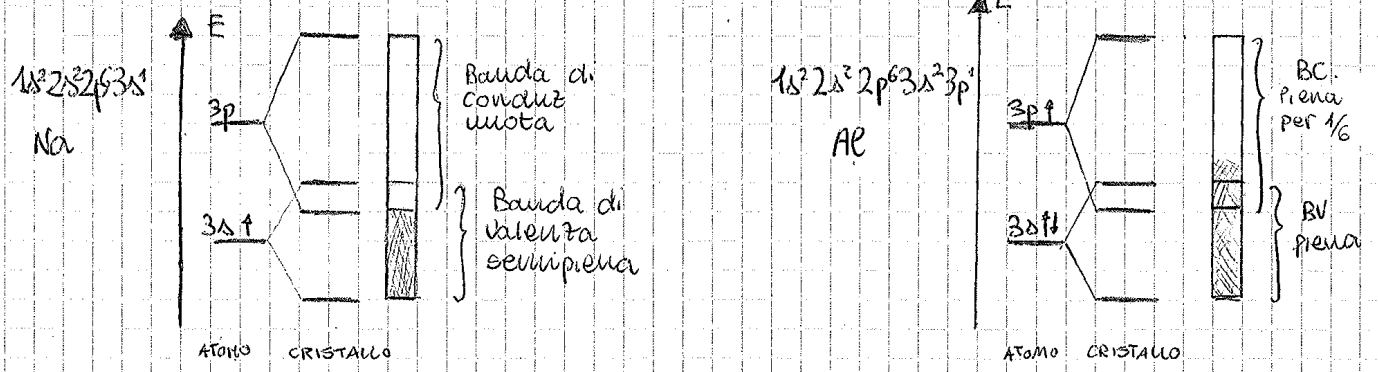 E
1s² 2s² 2p⁶ 3s¹
Na
3p
3s ↑
Banda di
conduz
vuota
Banda di
valenza
semipiena
ATOMO CRISTALLO
E
1s² 2s² 2p⁶ 3s² 3p¹
Al
3p ↑
3s ↑↓
BC.
Piena
per 1/6
BV
piena
ATOMO CRISTALLO